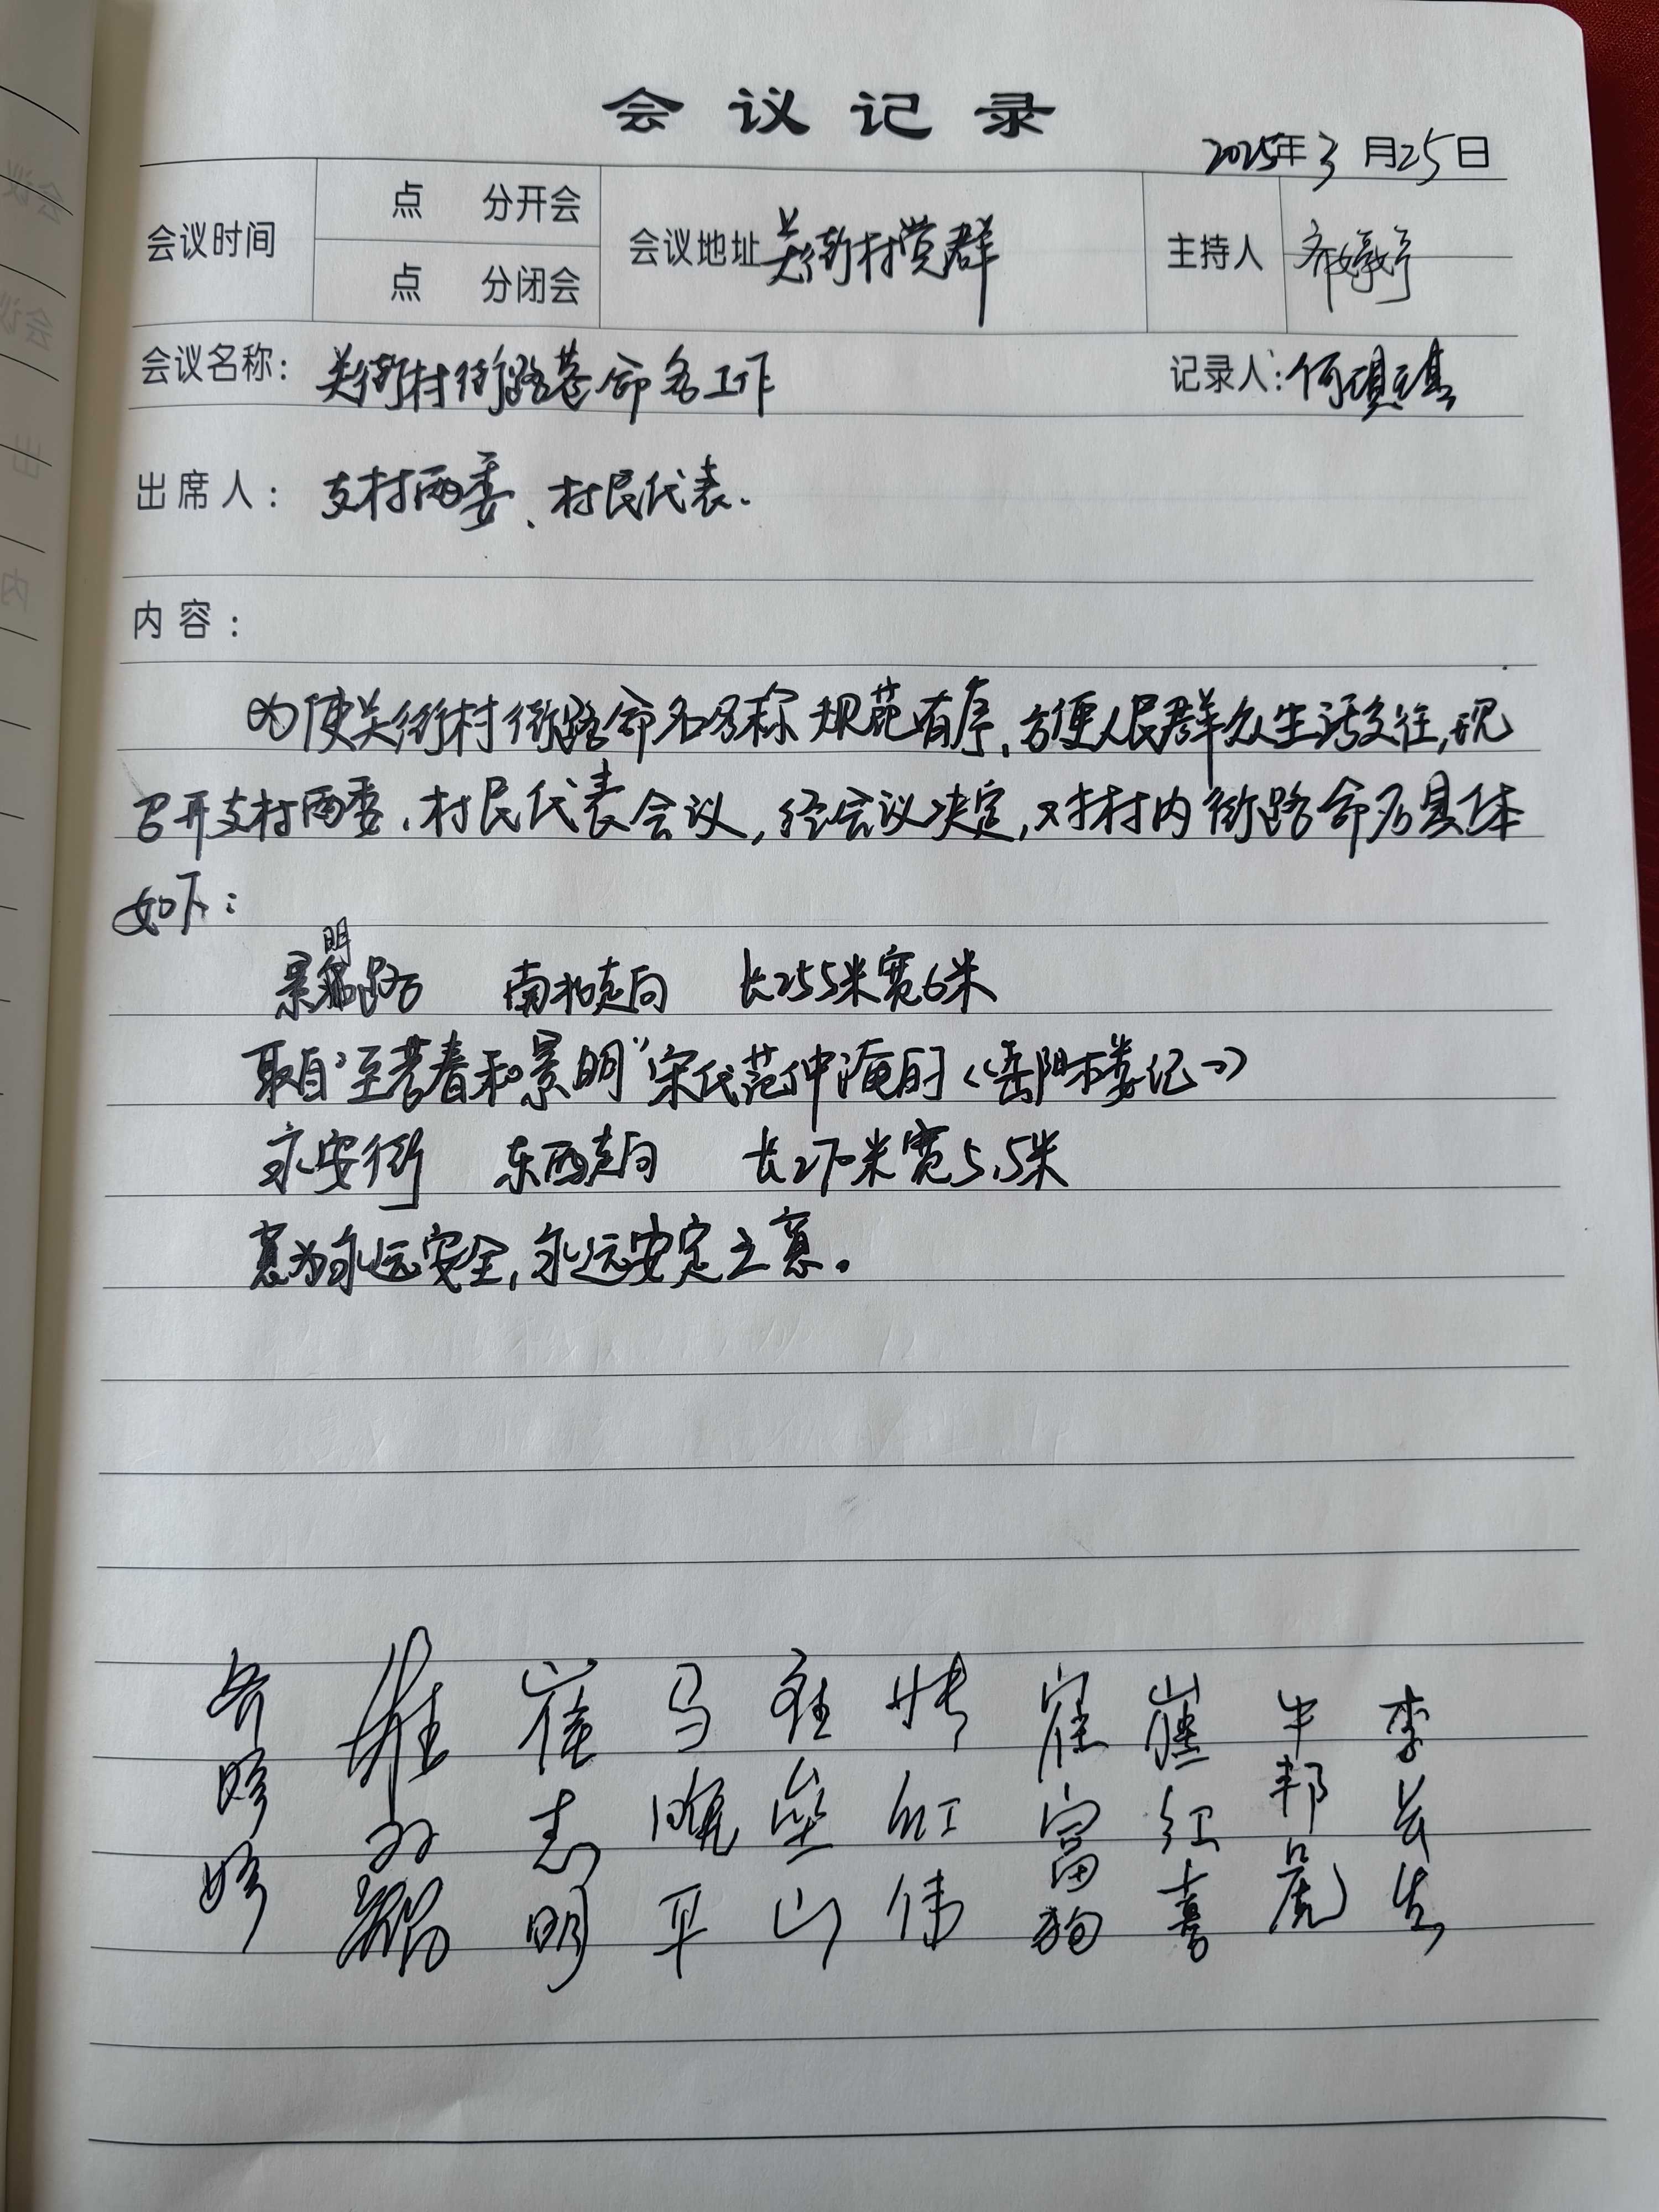 会议记录
2025年3月25日
会议时间 点 分开会
点 分闭会
会议地址 关街村党群
主持人
会议名称: 关街村街路巷命名工作
记录人:
出席人: 支村两委、村民代表.
内容:
为使关街村街路命名名称规范有序,方便人民群众生活交往,现
召开支村两委、村民代表会议,经会议决定,对村内街路命名具体
如下:
景明路 南北走向 长255米宽6米
取自"至若春和景明"宋代范仲淹的《岳阳楼记》
永安街 东西走向 长270米宽5.5米
意为永远安全,永远安定之意。
崔志明
马晓平
崔红喜
牛邦虎